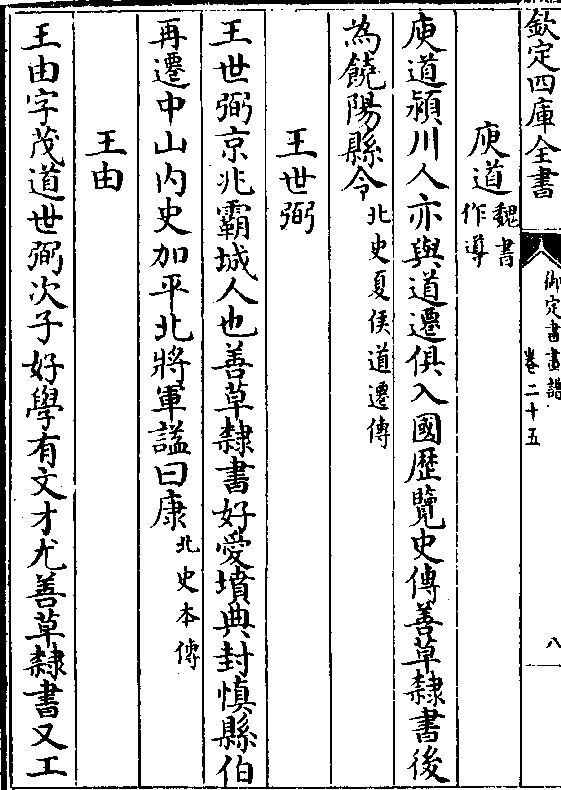 欽定四庫全書
御定書畫譜
卷二十五
八
庾道魏書作導
庾道潁川人亦與道遷俱入國歷覽史傳善草隸書後
為饒陽縣令北史夏侯道遷傳
王世弼
王世弼京兆霸城人也善草隸書好愛墳典封慎縣伯
再遷中山內史加平北將軍謚曰康北史本傳
王由
王由字茂道世弼次子好學有文才尤善草隸書又工